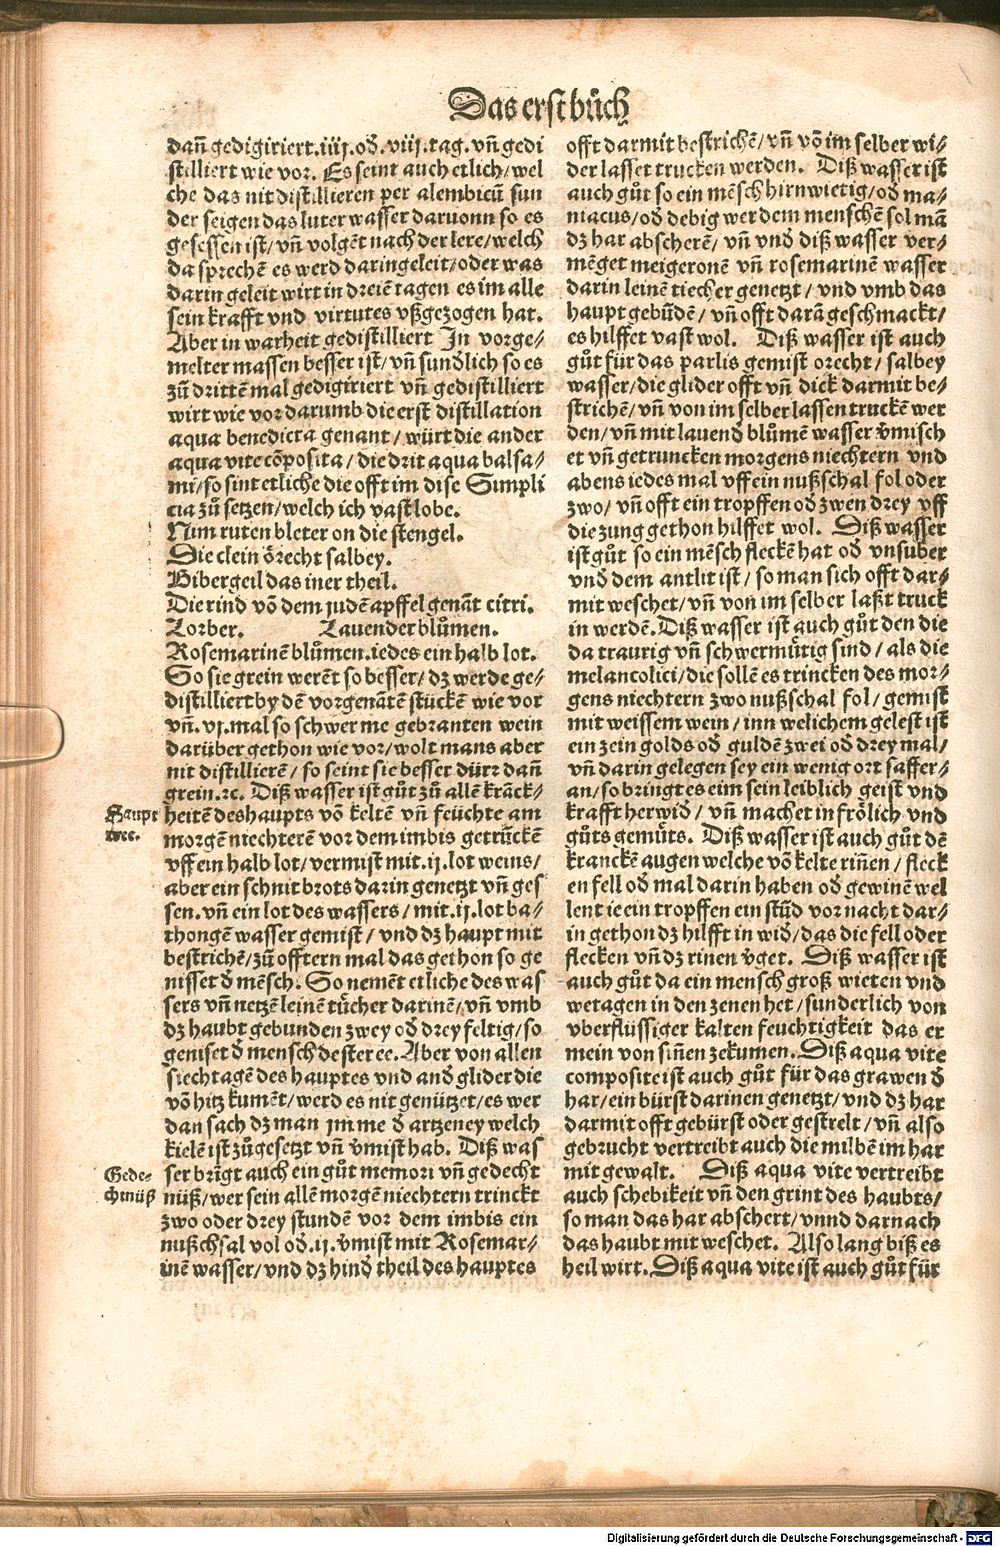 Das erst bůch
dañ gedigiriert.iiij.od̄.viij.tag.vñ gedi
stilliert wie vor. Es seint auch etlich/wel
che das nit distillieren per alembicū sun
der seigen das luter wasser daruonn so es
gesessen ist/vñ volgēt nach der lere/welch
da sprechē es werd darin geleit/oder was
darin geleit wirt in dreiē tagen es im alle
sein krafft vnd virtutes vßgezogen hat.
Aber in warheit gedistilliert In vorge⸗
melter massen besser ist/vñ sund̄lich so es
zů drittē mal gedigiriert vñ gedistilliert
wirt wie vor darumb die erst distillation
aqua benedicta genant/würt die ander
aqua vite cōposita/die drit aqua balsa⸗
mi/so sint etliche die offt im dise Simpli
cia zů setzen/welch ich vast lobe.
Nim ruten bleter on die stengel.
Die clein ōrecht salbey.
Bibergeil das iner theil.
Die rind vō dem judē apffel genāt citri.
Lorber. Lauender blůmen.
Rosemarinē blůmen.iedes ein halb lot.
So sie grein werēt so besser/dz werde ge⸗
distilliert by dē vorgenātē stückē wie vor
vñ.vj.mal so schwer me gebranten wein
darüber gethon wie vor/wolt mans aber
nit distillierē/so seint sie besser dürr dañ
grein.⁊c. Diß wasser ist gůt zů allē krāck⸗
heitē des haupts vō keltē vñ feüchte am
morgē niechteren vor dem imbis getrūckē
vff ein halb lot/vermist mit.ij.lot weins/
aber ein schnit brots darin genetzt vñ ges
sen.vñ ein lot des wassers/mit.ij.lot ba⸗
thongē wasser gemist/vnd dz haupt mit
bestrichē/zů offtern mal das gethon so ge
nisset d̄ mēsch. So nemēt etliche des was
sers vñ netzē leinē tücher darinē/vñ vmb
dz haubt gebunden zwey od̄ drey feltig/so
geniset d̄ mensch dester ee. Aber von allen
siechtagē des hauptes vnd and̄ glider die
vō hitz kumēt/werd es nit genützet/es wer
dan sach dz man im me d̄ artzeney welch
kielē ist zůgesetzt vñ v̄mist hab. Diß was
ser brīgt auch ein gůt memori vñ gedecht
nüß/wer sein allē morgē niechtern trinckt
zwo oder drey stundē vor dem imbis ein
nußchsal vol od̄.ij.v̄mist mit Rosemar⸗
inē wasser/vnd dz hind̄ theil des hauptes
Haupt
wee.
Gede⸗
chtnüß
offt darmit bestrichē/vñ vō im selber wi⸗
der lasset trucken werden. Diß wasser ist
auch gůt so ein mēsch hirnwietig/od̄ ma⸗
niacus/od̄ debig wer dem menschē sol mā
dz har abscherē/vñ vnd̄ diß wasser ver⸗
mēget meigeronē vñ rosemarinē wasser
darin leinē tiecher genetzt/vnd vmb das
haupt gebūdē/vñ offt darā geschmackt/
es hilffet vast wol. Diß wasser ist auch
gůt für das parlis gemist orecht/salbey
wasser/die glider offt vñ dick darmit be⸗
strichē/vñ von im selber lassen truckē wer
den/vñ mit lauend̄ blůmē wasser v̄misch
et vñ getruncken morgens niechtern vnd
abens iedes mal vff ein nußschal fol oder
zwo/vñ offt ein tropffen od̄ zwen drey vff
die zung gethon hilffet wol. Diß wasser
ist gůt so ein mēsch fleckē hat od̄ vnsuber
vnd̄ dem antlit ist/so man sich offt dar⸗
mit weschet/vñ von im selber laßt truck
in werdē. Diß wasser ist auch gůt den die
da traurig vñ schwermůtig sind/als die
melancolici/die sollē es trincken des mor⸗
gens niechtern zwo nußschal fol/gemist
mit weissem wein/inn welichem gelest ist
ein zein golds od̄ guldē zwei od̄ drey mal/
vñ darin gelegen sey ein wenig ort saffer⸗
an/so bringt es eim sein leiblich geist vnd
krafft herwid̄/vñ machet in frölich vnd
gůts gemůts. Diß wasser ist auch gůt dē
kranckē augen welche vō kelte riñen/fleck
en fell od̄ mal darin haben od̄ gewinē wel
lent ie ein tropffen ein stūd vor nacht dar⸗
in gethon dz hilfft in wid̄/das die fell oder
flecken vñ dz rinen v̄get. Diß wasser ist
auch gůt da ein mensch groß wieten vnd
wetagen in den zenen het/sunderlich von
vberflüssiger kalten feuchtigkeit das er
mein von siñen zekumen. Diß aqua vite
composite ist auch gůt für das grawen d̄
har/ein bürst darinen genetzt/vnd dz har
darmit offt gebürst oder gestrelt/vñ also
gebrucht vertreibt auch die milbē im har
mit gewalt. Diß aqua vite vertreibt
auch schebikeit vñ den grint des haubts/
so man das har abschert/vnnd darnach
das haubt mit weschet. Also lang biß es
heil wirt. Diß aqua vite ist auch gůt für
Digitalisierung gefördert durch die Deutsche Forschungsgemeinschaft - DFG